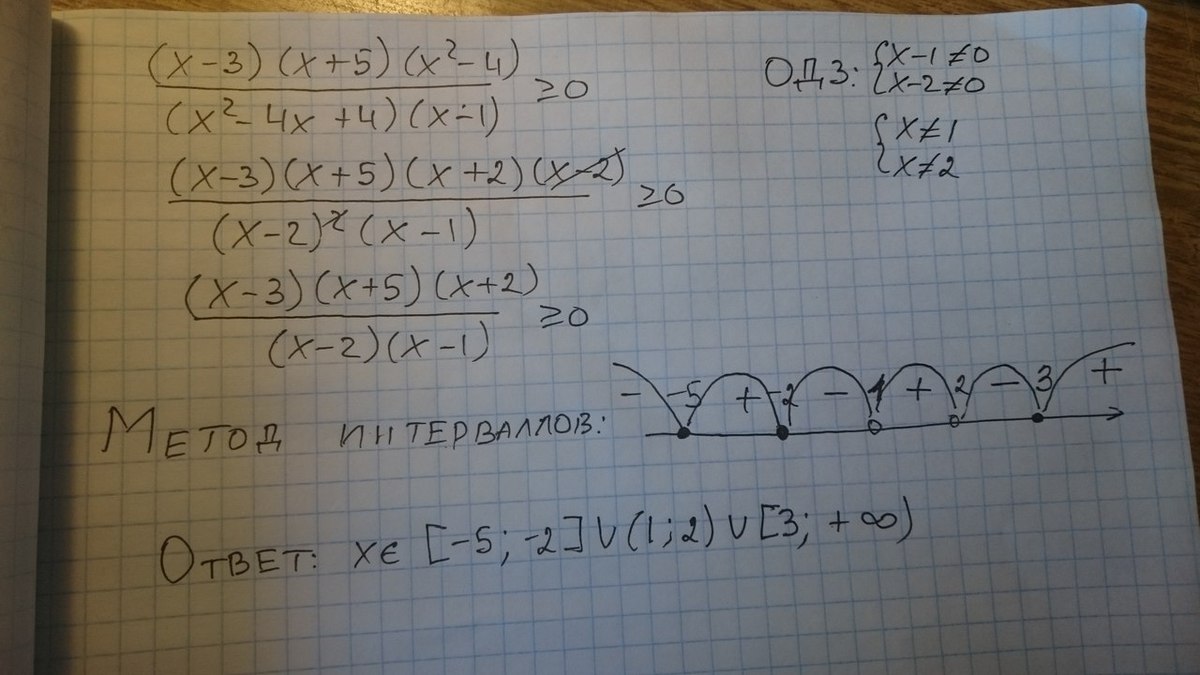 (x-3)(x+5)(x²-4)
(x²-4x+4)(x-1) ≥0
ОДЗ: {x-1≠0
x-2≠0
{x≠1
x≠2
(x-3)(x+5)(x+2)(x-2)
(x-2)² (x-1) ≥0
(x-3)(x+5)(x+2)
(x-2)(x-1) ≥0
Метод интерваллов:
- -5 + -2 - 1 + 2 - 3 +
Ответ: x∈ [-5; -2]∪(1;2)∪[3; +∞)